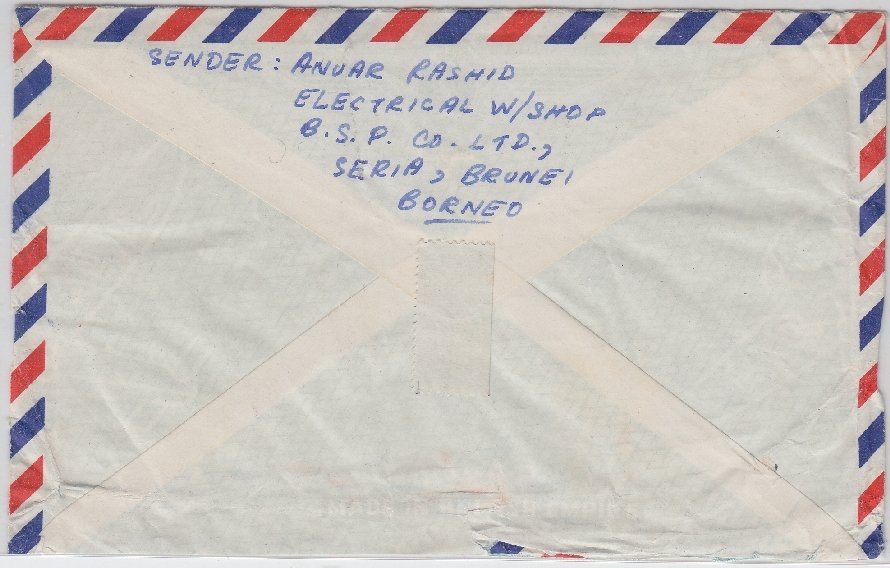 SENDER: ANUAR RASHID
ELECTRICAL W/SHOP
B.S.P. CO. LTD.,
SERIA, BRUNEI
BORNEO